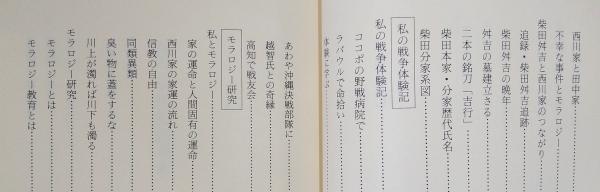 西川家と田中家
不幸な事件とモラロジー
柴田舛吉と西川家のつながり
追録・柴田舛吉追跡
柴田舛吉の晩年
舛吉の墓建立さる
二本の銘刀「吉行」
柴田本家・分家歴代氏名
柴田分家系図
私の戦争体験記
私の戦争体験記
ココポの野戦病院で
ラバウルで命拾い
体験に学ぶ
あわや沖縄決戦部隊に
越智氏との奇縁
高知で戦友会
モラロジー研究
私とモラロジー
家の運命と人間固有の運命
西川家の家運の流れ
信教の自由
同類異類
臭い物に蓋をするな
川上が濁れば川下も濁る
モラロジー研究
モラロジーとは
モラロジー教育とは